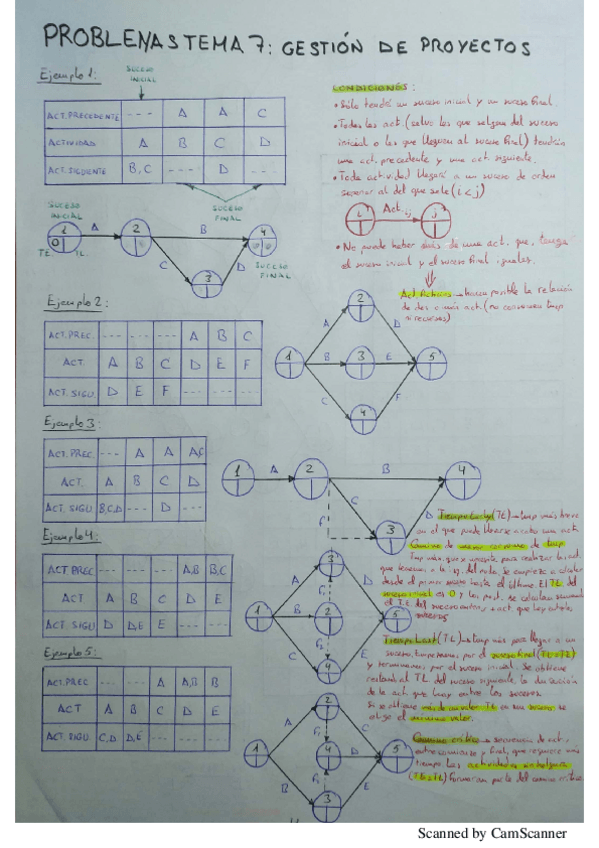 PROBLEMAS TEMA 7: GESTIÓN DE PROYECTOS
Ejemplo 1:
SUCESO INICIAL
ACT. PRECEDENTE --- A A C
ACTIVIDAD A B C D
ACT. SIGUIENTE B,C --- D ---
SUCESO INICIAL
SUCESO FINAL
1 A 2 B 4
0
TE TL
C 3 D
SUCESO FINAL
CONDICIONES:
• Sólo tendrá un suceso inicial y un suceso final.
• Todas las act. (salvo las que salgan del suceso
inicial o las que lleguen al suceso final) tendrán
una act. precedente y una act. siguiente.
• Toda actividad llegará a un suceso de orden
superior al del que sale (i < j)
i Act. ij j
• No puede haber más de una act. que tenga
el suceso inicial y el suceso final iguales.
Act. ficticias → hacen posible la relación
de dos o más act. (no consumen tiempo
ni recursos)
Ejemplo 2:
ACT. PREC. --- --- --- A B C
ACT. A B C D E F
ACT. SIGU. D E F --- --- ---
2
A D
1 B 3 E 5
C F
4
Ejemplo 3
ACT. PREC. --- A A A,C
ACT. A B C D
ACT. SIGU. B,C,D --- D ---
1 A 2 B 4
C
3 D
Ejemplo 4:
ACT PREC --- --- --- A,B B,C
ACT A B C D E
ACT. SIGU D D,E E --- ---
3
A D
1 B 2 5
C E
4
Ejemplo 5:
ACT. PREC --- --- A A,B B
ACT A B C D E
ACT. SIGU. C,D D,E --- --- ---
2
A C
1 4 D 5
B E
3
(TE) → tiempo más breve
en el que puede llevarse a cabo una act.
desde el primer suceso hasta el último. El TE del
suceso inicial es 0
sucesos
(TL) → tiempo más para llegar a un
suceso, empezamos por el suceso final (TE=TL)
y terminamos por el suceso inicial. Se obtiene
restando al TL del suceso siguiente la duración
de la act. que hay entre los sucesos.
Si se obtiene más de un valor TL en un suceso se
elige el mínimo valor.
Camino crítico → secuencia de act.
entre comienzo y final, que requiere más
tiempo. Las actividades sin holgura
(TE=TL) forman parte del camino crítico.
Scanned by CamScanner